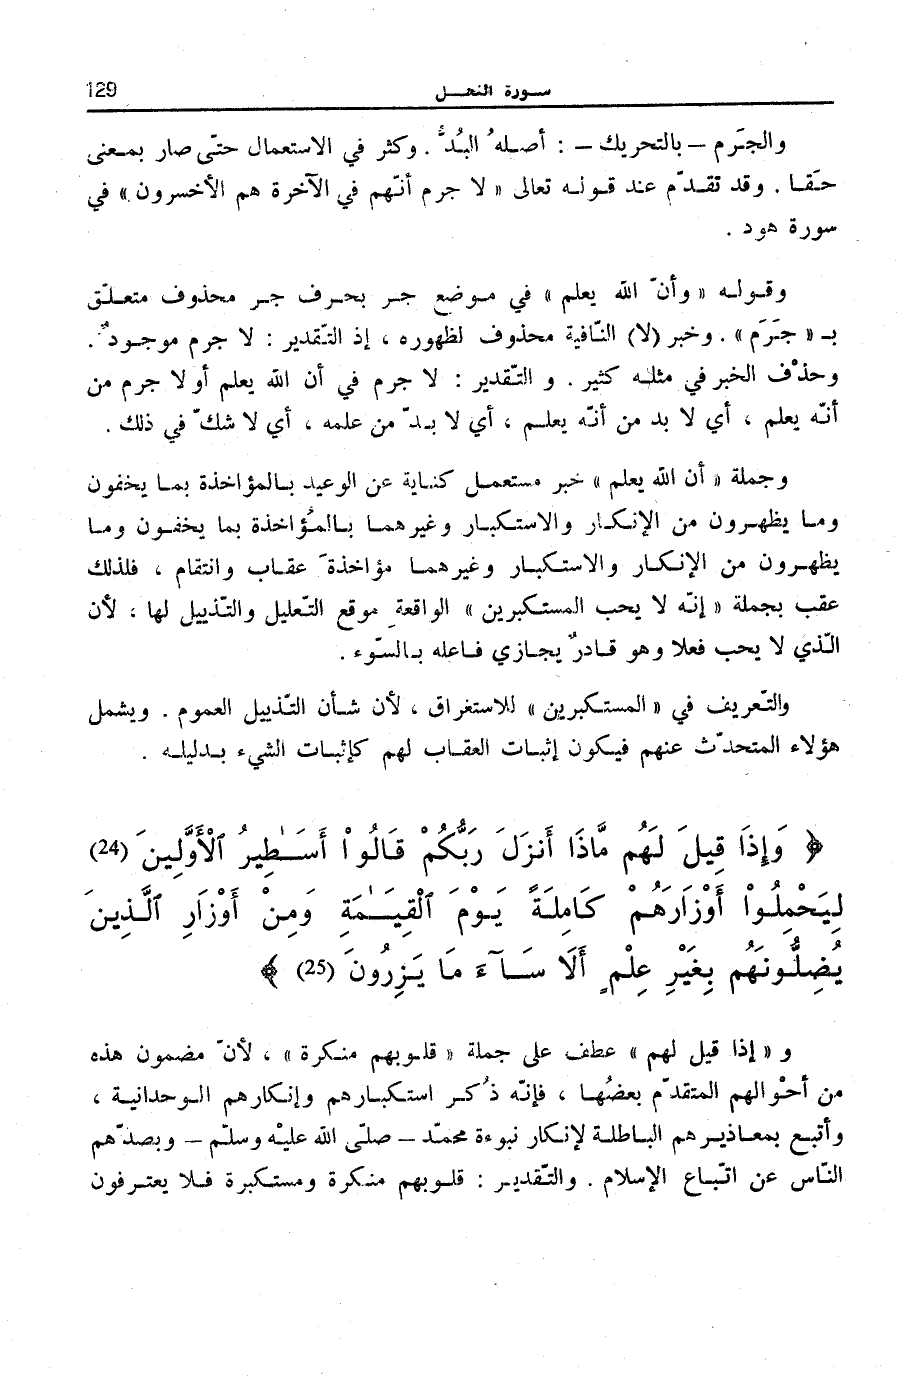 129 سورة النحل
والجَرم – بالتحريك – : أصله ُ البُدُّ . وكثر في الاستعمال حتّى صار بمعنى
حقّا . وقد تقدّم عند قوله تعالى « لا جرم أنّهم في الآخرة هم الأخسرون » في
سورة هود .
وقوله « وأنّ الله يعلم » في موضع جر بحرف جر محذوف متعلّق
بـ « جَرَم » . وخبر (لا) النّافية محذوف لظهوره ، إذ التّقدير : لا جرم موجودٌ .
وحذْف الخبر في مثله كثير . و التّقدير : لا جرم في أن الله يعلم أو لا جرم من
أنّه يعلم ، أي لا بد من أنّه يعلم ، أي لا بدّ من علمه ، أي لا شكّ في ذلك .
وجملة « أن الله يعلم » خبر مستعمل كناية عن الوعيد بالمؤاخذة بما يخفون
وما يظهرون من الإنكار والاستكبار وغيرهما بالمُؤاخذة بما يخفون وما
يظهرون من الإنكار والاستكبار وغيرهما مؤاخذةَ عقاب وانتقام ، فلذلك
عقب بجملة « إنّه لا يحب المستكبرين » الواقعة موقع التّعليل والتّذييل لها ، لأن
الّذي لا يحب فعلا وهو قادرٌ يجازي فاعله بالسّوء .
والتّعريف في « المستكبرين » للاستغراق ، لأن شأن التّذييل العموم . ويشمل
هؤلاء المتحدّث عنهم فيكون إثبات العقاب لهم كإثبات الشيء بدليله .
﴿ وَإِذَا قِيلَ لَهُم مَّاذَا أَنزَلَ رَبُّكُمْ قَالُوا أَسَـٰطِيرُ ٱلْأَوَّلِينَ (24)
لِيَحْمِلُوا أَوْزَارَهُمْ كَامِلَةً يَوْمَ ٱلْقِيَـٰمَةِ وَمِنْ أَوْزَارِ ٱلَّذِينَ
يُضِلُّونَهُم بِغَيْرِ عِلْمٍ أَلَا سَآءَ مَا يَزِرُونَ (25) ﴾
و « إذا قيل لهم » عطف على جملة « قلوبهم منكرة » ، لأنّ مضمون هذه
من أحْوالهم المتقدّم بعضُها ، فإنّه ذُكر استكبارهم وإنكارهم الوحدانية ،
وأتبع بمعاذيرهم الباطلة لإنكار نبوءة محمّد – صلّى الله عليْه وسلّم – وبصدّهم
النّاس عن اتّباع الإسلام . والتّقدير : قلوبهم منكرة ومستكبرة فلا يعترفون